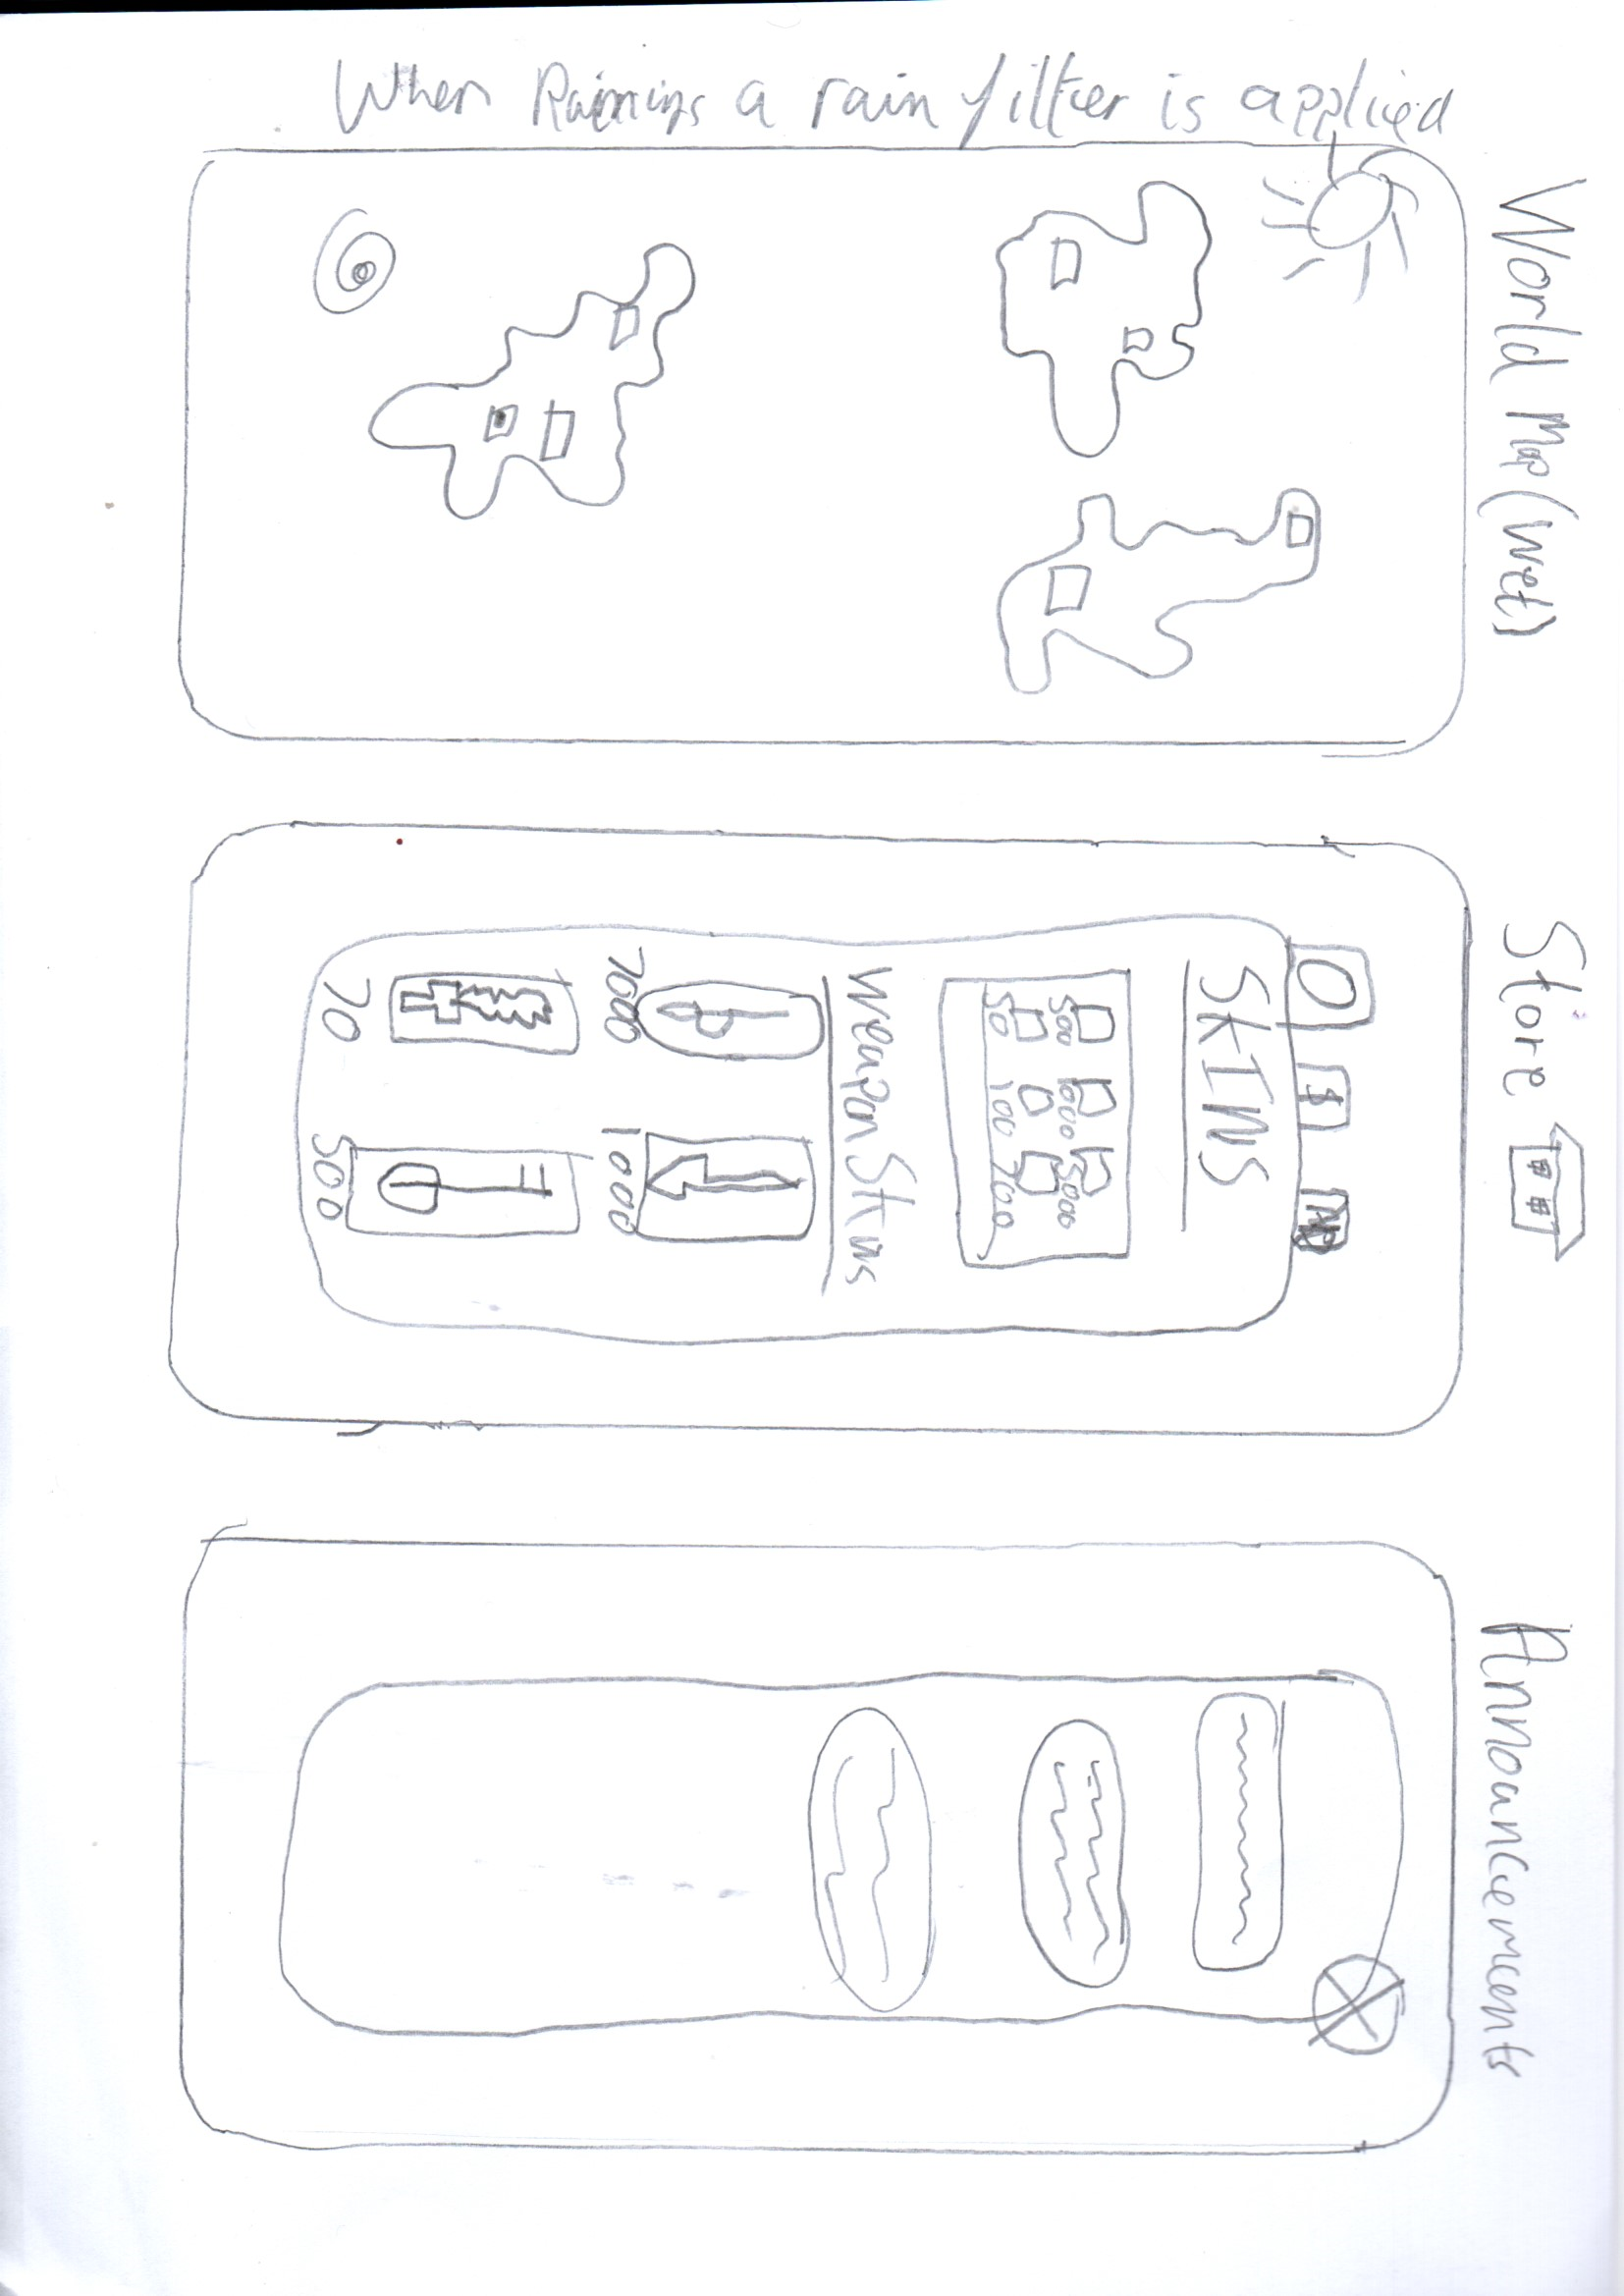 When Raining a rain filter is applied
World Map (wet)
Store
$ $
$
SKINS
500 1000 5000
50 100
Weapon Skins
7000 1000
70 500
Annoancements